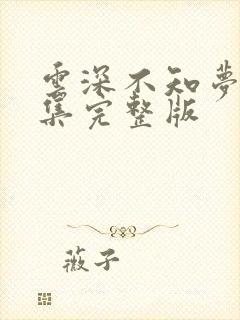 雲深不知夢
集完整版
薇子